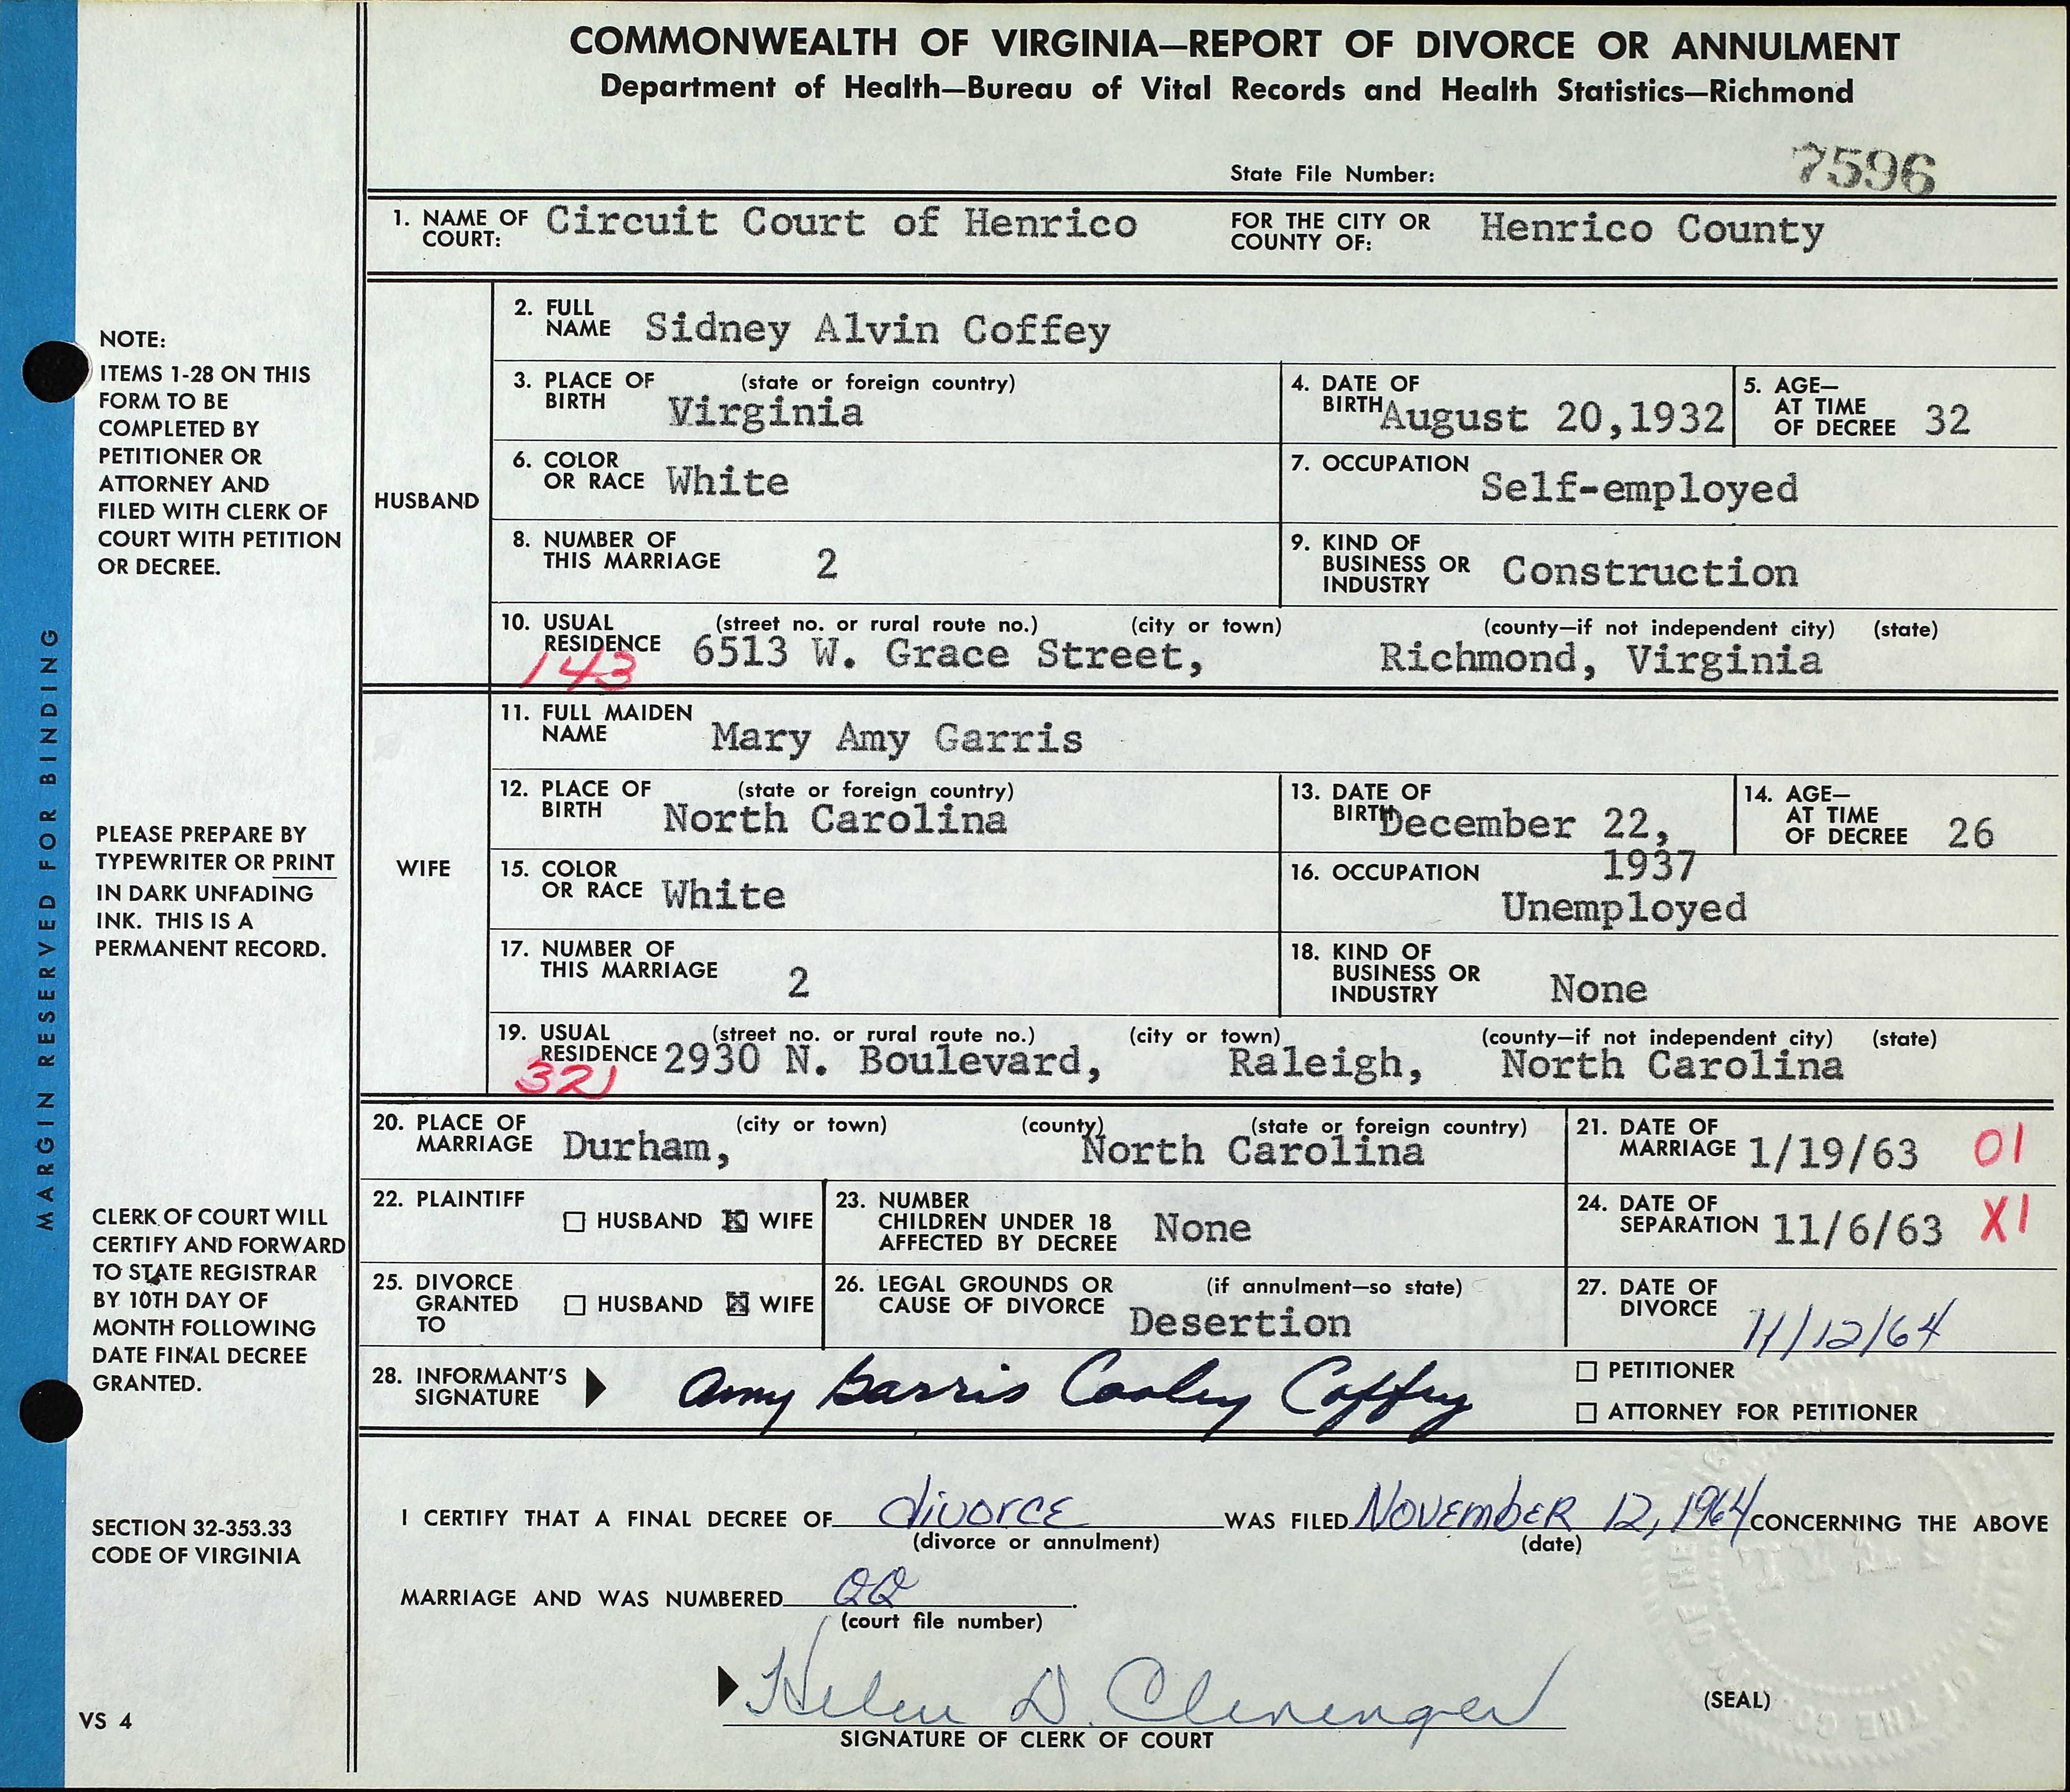 COMMONWEALTH OF VIRGINIA—REPORT OF DIVORCE OR ANNULMENT
Department of Health—Bureau of Vital Records and Health Statistics—Richmond
State File Number: 7596
1. NAME OF COURT: Circuit Court of Henrico FOR THE CITY OR COUNTY OF: Henrico County
HUSBAND
2. FULL NAME Sidney Alvin Coffey
3. PLACE OF BIRTH (state or foreign country) Virginia
4. DATE OF BIRTH August 20,1932
5. AGE—AT TIME OF DECREE 32
6. COLOR OR RACE White
7. OCCUPATION Self-employed
8. NUMBER OF THIS MARRIAGE 2
9. KIND OF BUSINESS OR INDUSTRY Construction
10. USUAL RESIDENCE (street no. or rural route no.) (city or town) (county—if not independent city) (state)
143 6513 W. Grace Street, Richmond, Virginia
WIFE
11. FULL MAIDEN NAME Mary Amy Garris
12. PLACE OF BIRTH (state or foreign country) North Carolina
13. DATE OF BIRTH December 22, 1937
14. AGE—AT TIME OF DECREE 26
15. COLOR OR RACE White
16. OCCUPATION Unemployed
17. NUMBER OF THIS MARRIAGE 2
18. KIND OF BUSINESS OR INDUSTRY None
19. USUAL RESIDENCE (street no. or rural route no.) (city or town) (county—if not independent city) (state)
321 2930 N. Boulevard, Raleigh, North Carolina
20. PLACE OF MARRIAGE (city or town) (county) (state or foreign country) Durham, North Carolina
21. DATE OF MARRIAGE 1/19/63 01
22. PLAINTIFF HUSBAND X WIFE
23. NUMBER CHILDREN UNDER 18 AFFECTED BY DECREE None
24. DATE OF SEPARATION 11/6/63 X1
25. DIVORCE GRANTED TO HUSBAND X WIFE
26. LEGAL GROUNDS OR CAUSE OF DIVORCE (if annulment—so state) Desertion
27. DATE OF DIVORCE 11/12/64
28. INFORMANT'S SIGNATURE Amy Garris Cooley Coffey
PETITIONER
ATTORNEY FOR PETITIONER
I CERTIFY THAT A FINAL DECREE OF divorce WAS FILED November 12, 1964 CONCERNING THE ABOVE
(divorce or annulment) (date)
MARRIAGE AND WAS NUMBERED QQ.
(court file number)
Helen D. Clevenger
SIGNATURE OF CLERK OF COURT
(SEAL)
MARGIN RESERVED FOR BINDING
NOTE:
ITEMS 1-28 ON THIS
FORM TO BE
COMPLETED BY
PETITIONER OR
ATTORNEY AND
FILED WITH CLERK OF
COURT WITH PETITION
OR DECREE.
PLEASE PREPARE BY
TYPEWRITER OR PRINT
IN DARK UNFADING
INK. THIS IS A
PERMANENT RECORD.
CLERK OF COURT WILL
CERTIFY AND FORWARD
TO STATE REGISTRAR
BY 10TH DAY OF
MONTH FOLLOWING
DATE FINAL DECREE
GRANTED.
SECTION 32-353.33
CODE OF VIRGINIA
VS 4